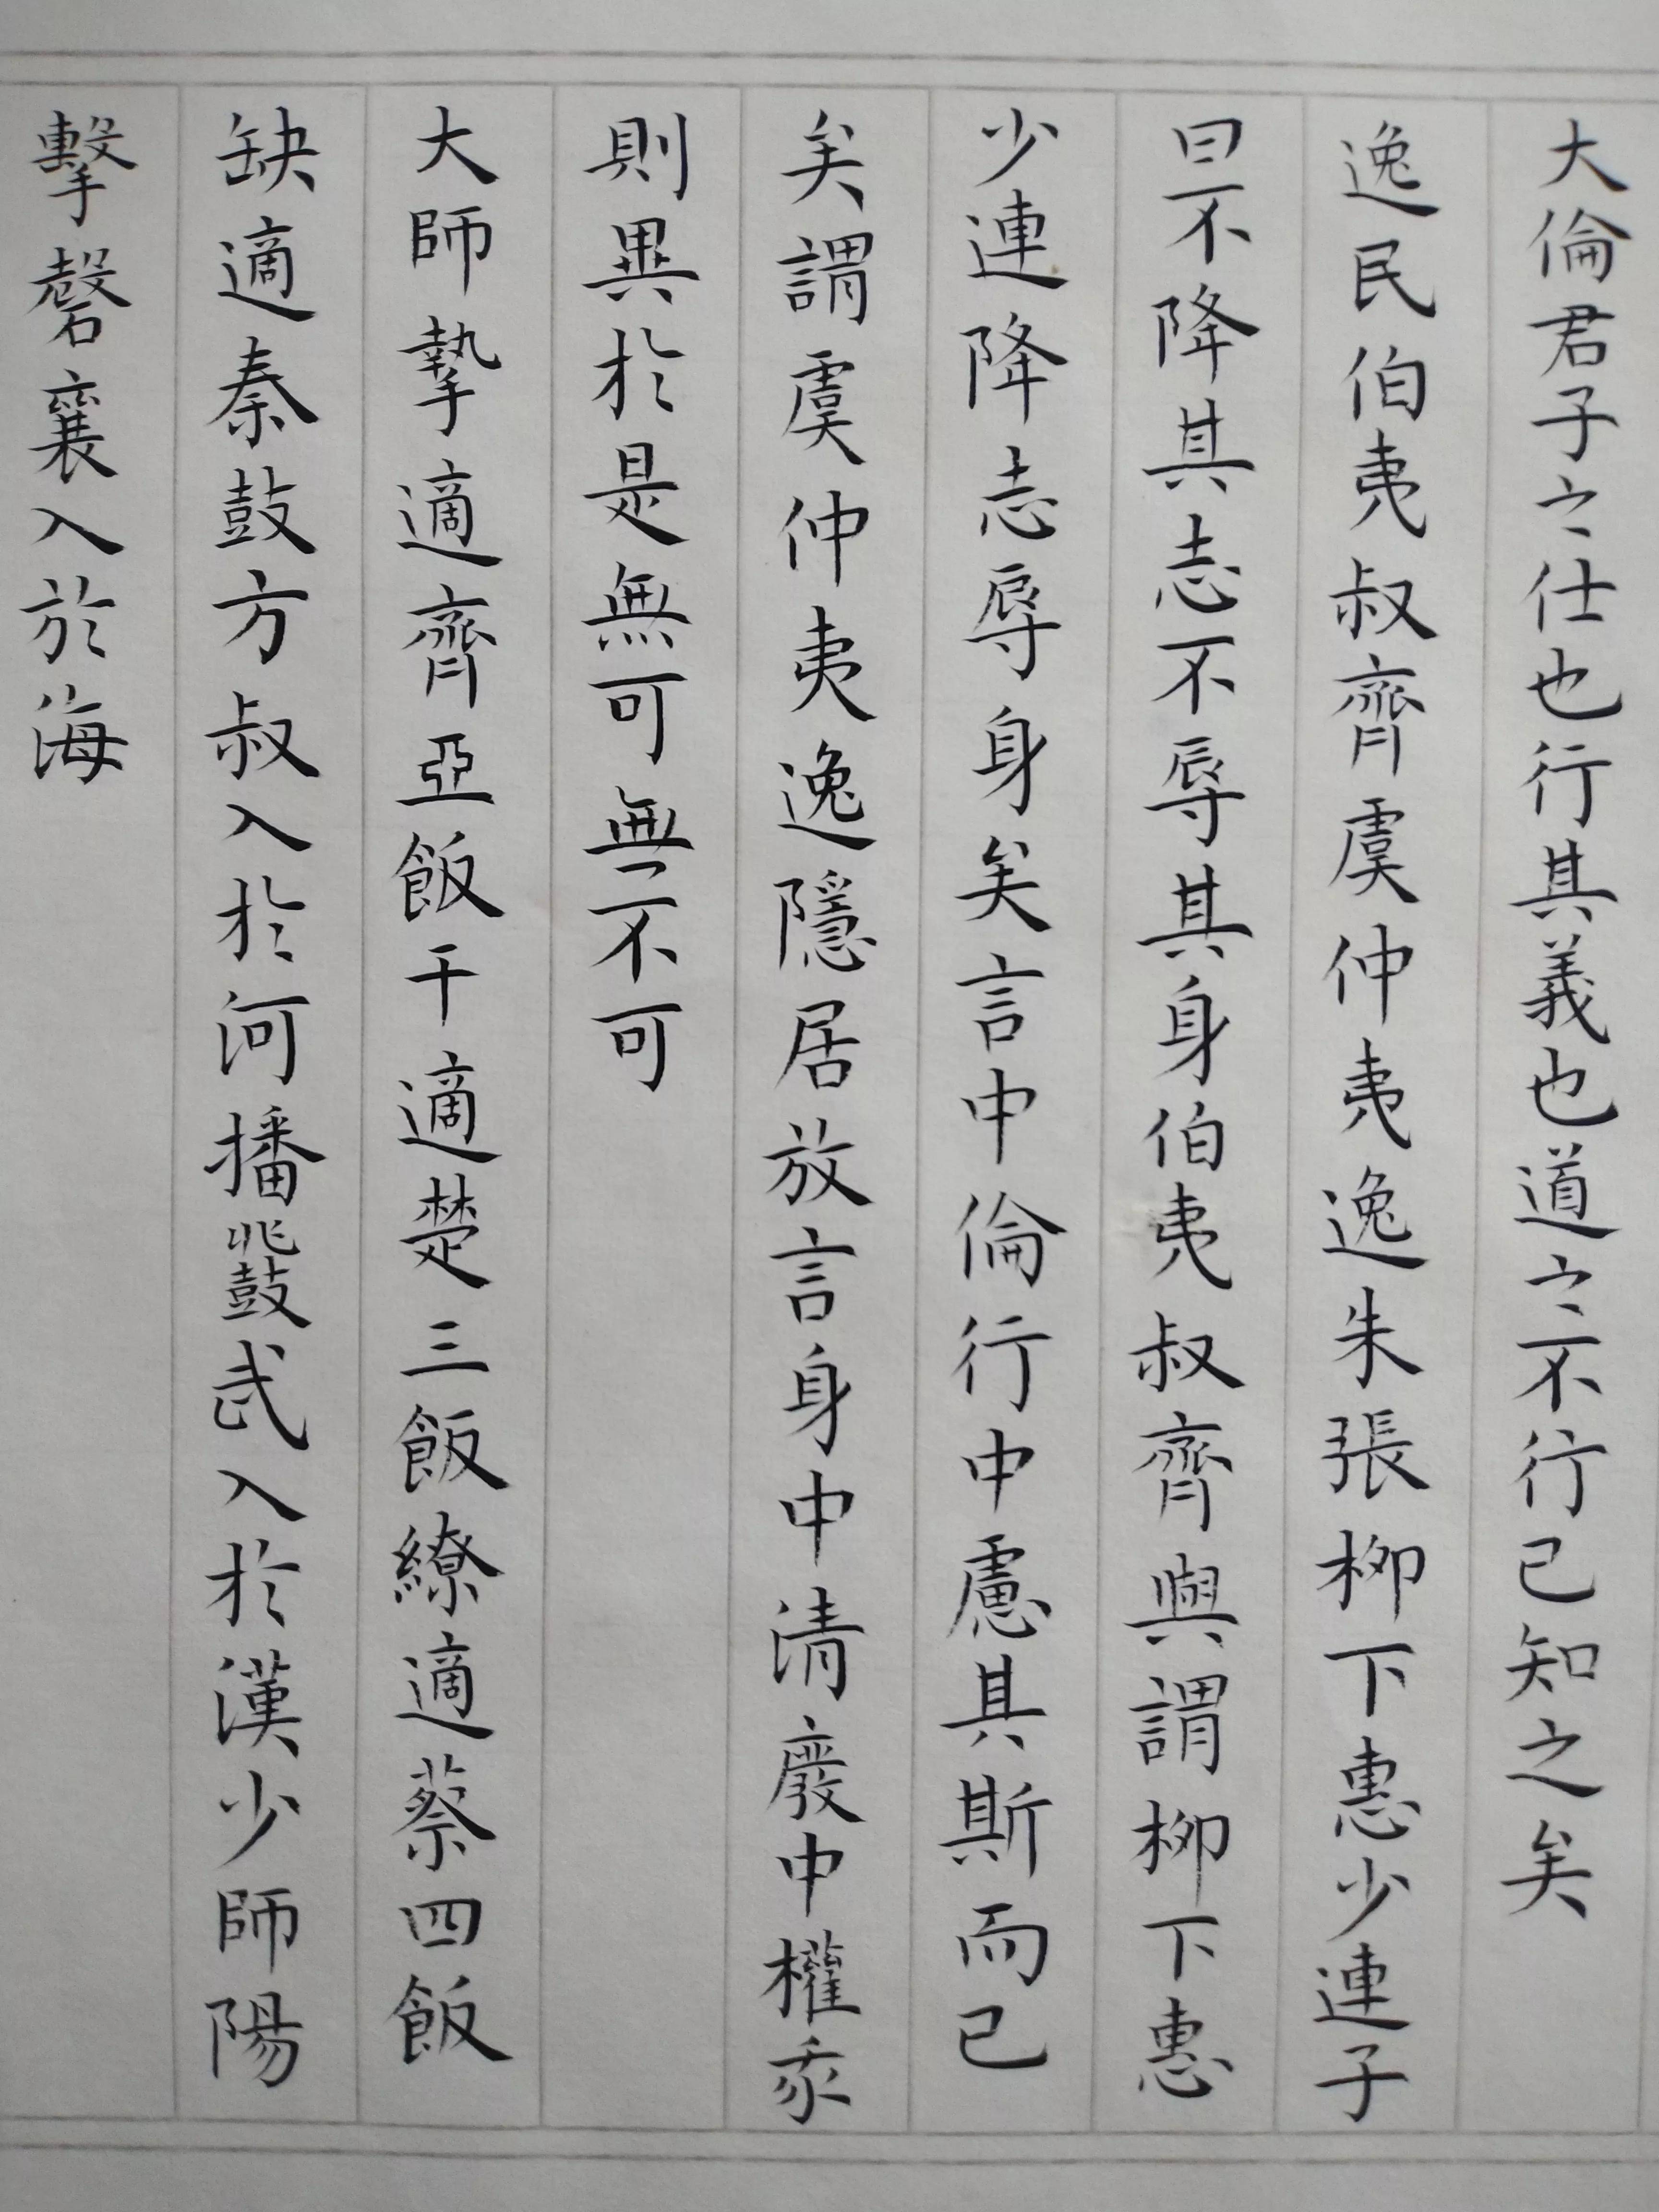 大倫君子之仕也行其義也道之不行已知之矣
逸民伯夷叔齊虞仲夷逸朱張柳下惠少連子
曰不降其志不辱其身伯夷叔齊與謂柳下惠
少連降志辱身矣言中倫行中慮其斯而已
矣謂虞仲夷逸隱居放言身中清廢中權我
則異於是無可無不可
大師摯適齊亞飯干適楚三飯繚適蔡四飯
缺適秦鼓方叔入於河播鼗武入於漢少師陽
擊磬襄入於海